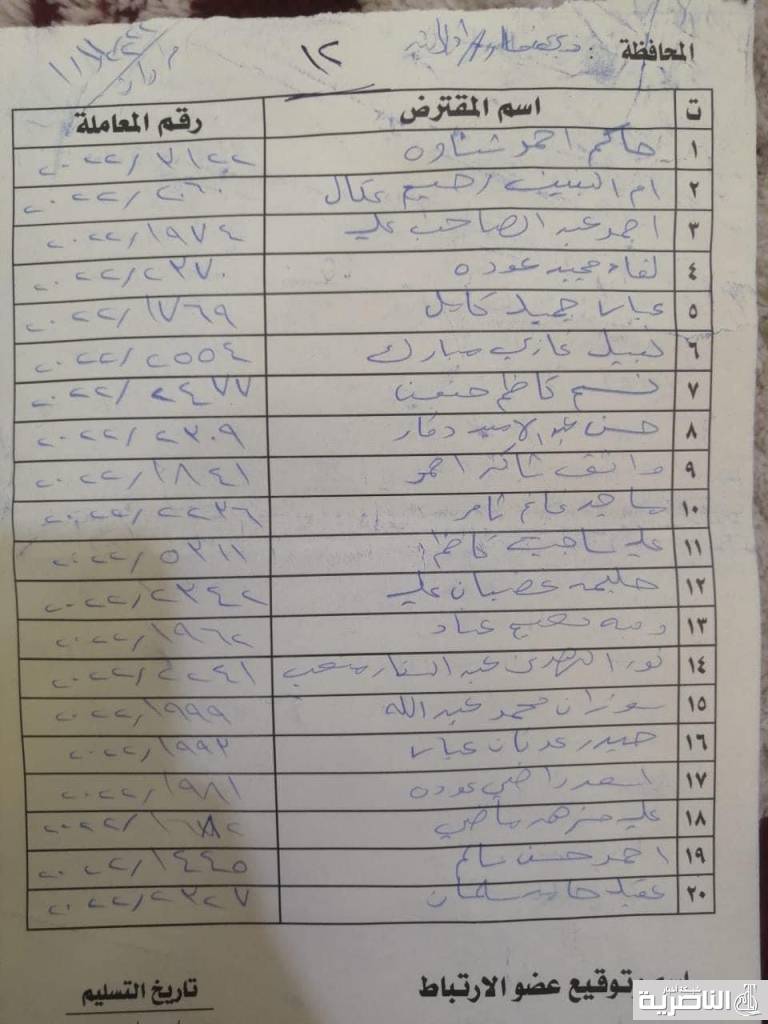 المحافظة :
١٢
ت اسم المقترض رقم المعاملة
١ حاكم احمد شناوه ٢٠٢٢/٣١٢٢
٢ ام البنين رحيم عكال ٢٠٢٢/٢٠٦٠
٣ احمد عبد الصاحب علي ٢٠٢٢/١٩٧٤
٤ لقاء مجيد عوده ٢٠٢٢/٢٣٧٠
٥ عباس حميد كامل ٢٠٢٢/١٧٦٩
٦ نبيل غازي مبارك ٢٠٢٢/٢٥٥٤
٧ كاظم ٢٠٢٢/٢٤٧٧
٨ حسن عبد الامير ٢٠٢٢/٢٣٠٩
٩ واثق شاكر احمد ٢٠٢٢/١٨٤١
١٠ ماجد غانم ثامر ٢٠٢٢/٢٢٣٦
١١ علي ناجي كاظم ٢٠٢٢/٥٣١١
١٢ حليمه غضبان علي ٢٠٢٢/٢٣٤٢
١٣ عناد ٢٠٢٢/١٩٦٢
١٤ نور الهدى عبد الستار متعب ٢٠٢٢/٢٢٤١
١٥ سوزان محمد عبد الله ٢٠٢٢/١٩٩٩
١٦ حيدر عدنان عباس ٢٠٢٢/١٩٩٢
١٧ اسعد راضي عوده ٢٠٢٢/١٩٨١
١٨ علي مزهر ماضي
١٩ احمد حسن سالم ٢٠٢٢/١٤٤٥
٢٠ عقيل حامد سلمان ٢٠٢٢/٢٣٢٧
اسم وتوقيع عضو الارتباط تاريخ التسليم
شبكة اخبار
الناصرية